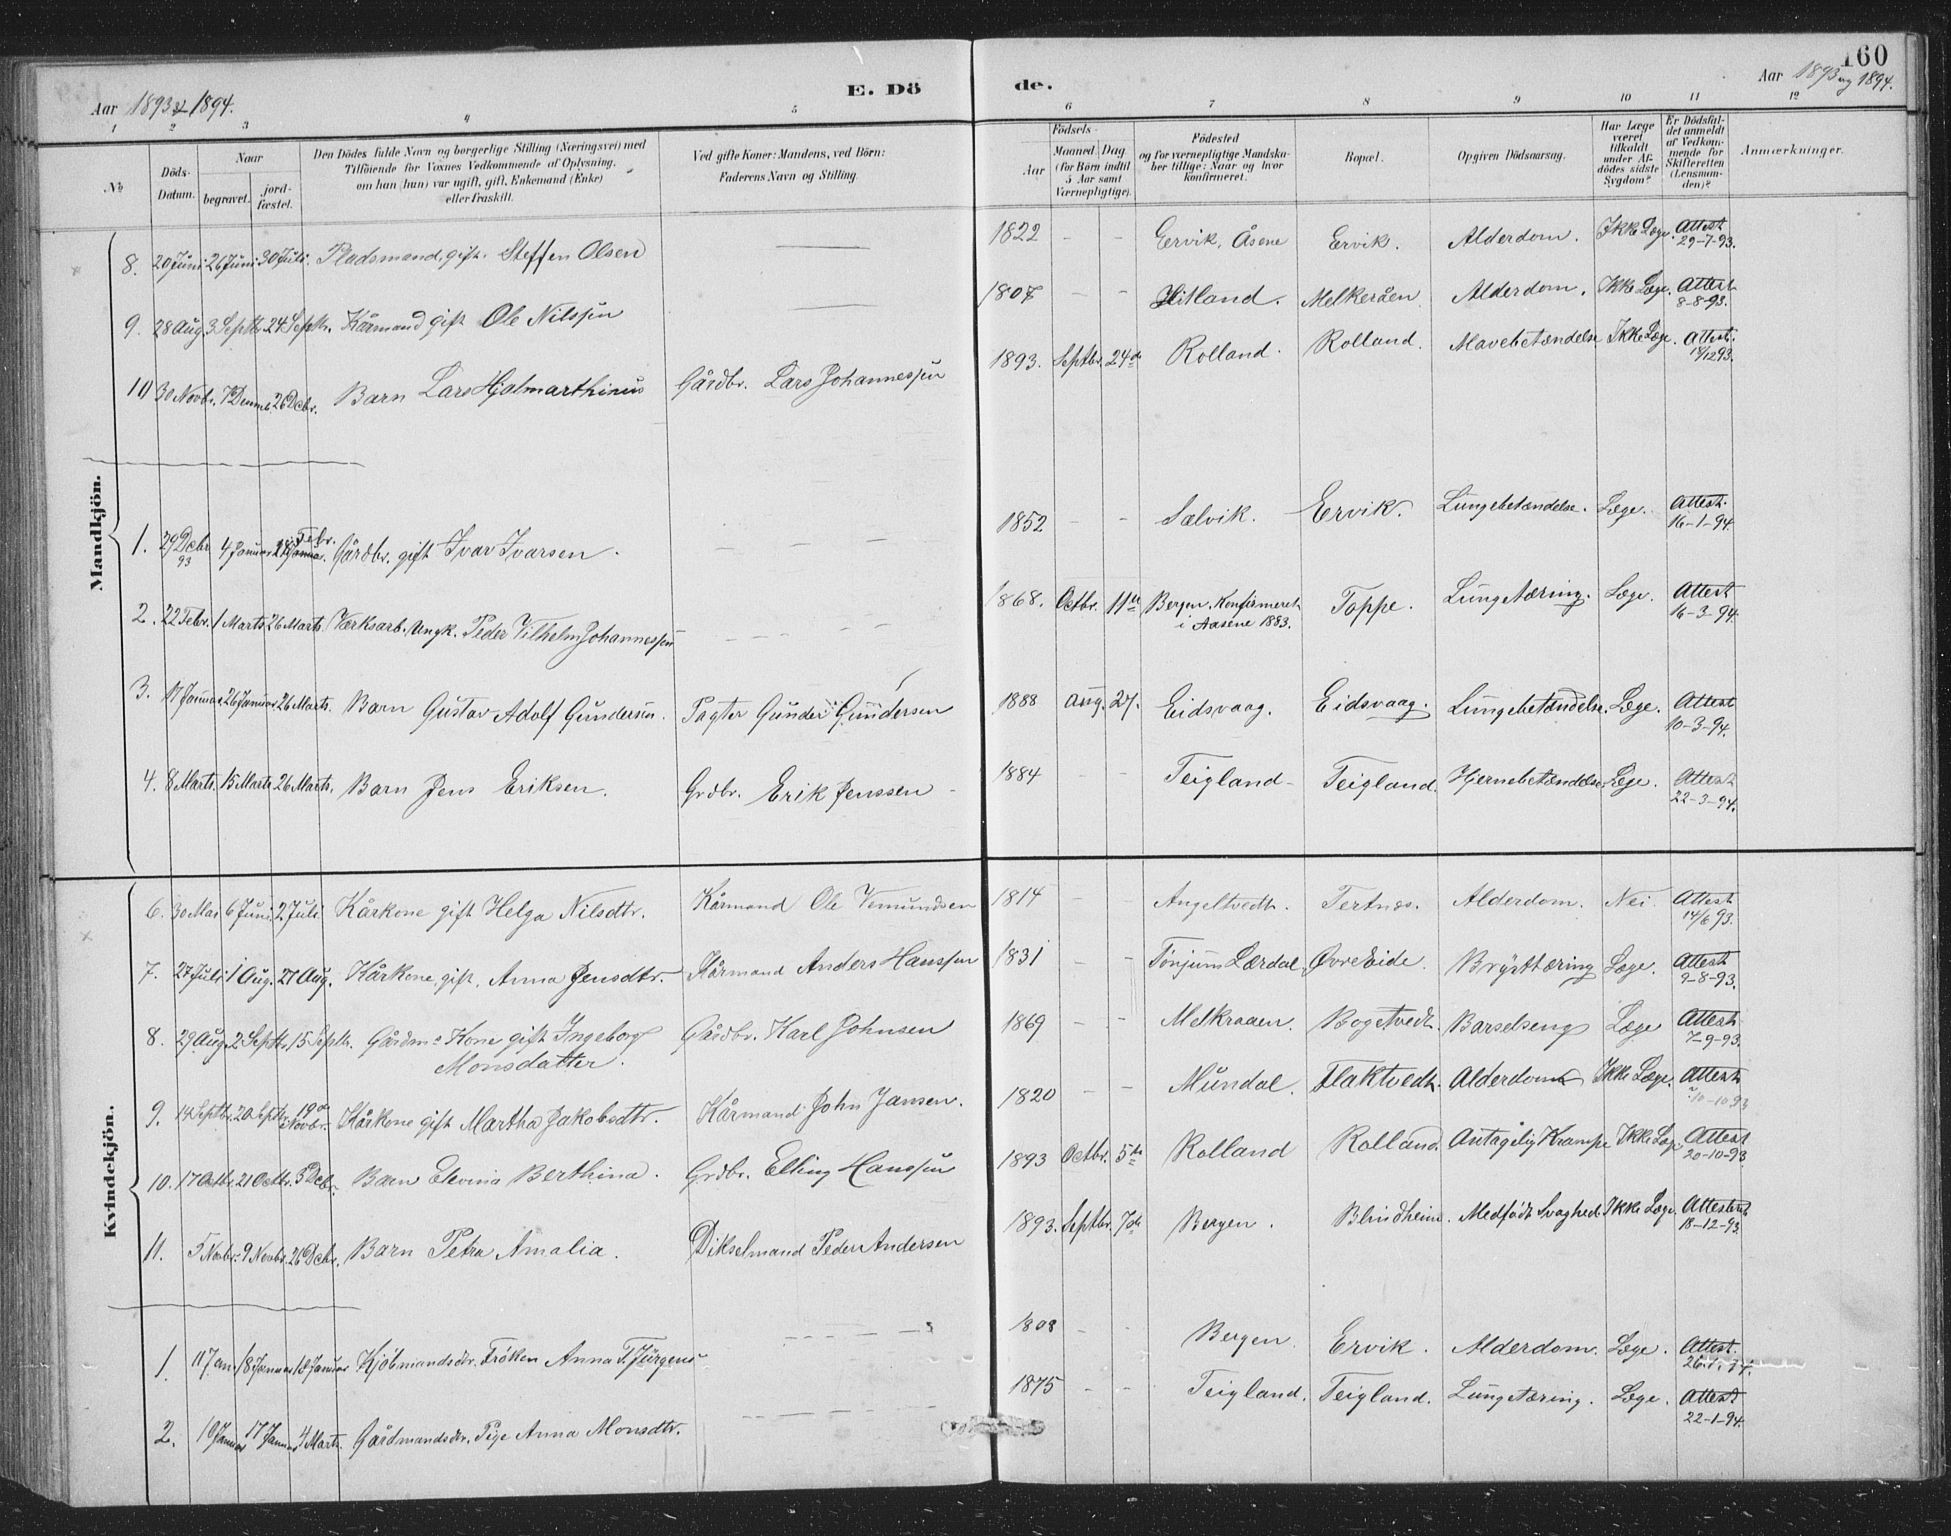 160
Aar 1893 & 1894.
E. Dö
de.
Aar 1893 og 1894.
1 2 3 4 5 6 7 8 9 10 11 12
No
Döds-Datum.
Naar
begravet.
jord-fæstet.
Den Dödes fulde Navn og borgerlige Stilling (Næringsvei) med
Tilföiende for Voxnes Vedkommende af Oplysning,
om han (hun) var ugift, gift, Enkemand (Enke)
eller fraskilt.
Ved gifte Koner: Mandens, ved Börn:
Faderens Navn og Stilling.
Födsels-
Aar
Maaned. Dag
(for Börn indtil
5 Aar samt
Værnepligtige).
Födested
og for værnepligtige Mandska-
ber tillige: Naar og hvor
konfirmeret.
Bopæl.
Opgiven Dödsaarsag.
Har Læge
været
tilkaldt
under Af-
dödes sidste
Sygdom?
Er Dödsfal-
det anmeldt
af Vedkom-
mende for
Skifteretten
(Lensman-
den)?
Anmærkninger.
Mandkjön.
8. 20 Juni 26 Juni 30 Juli. Pladsmand, gift. Steffen Olsen 1822 - - Eervik, Åsene Ervik. Alderdom. Ikke Læge. Attest 29-7-93.
9. 28 Aug. 3 Septb. 24 Septb. Kårmand gift Ole Nilssen 1807 - - Hitland. Melkeråen Alderdom. Ikke Læge. Attest 8-8-93.
10 30 Novbr. 7 Decemb. 26 Decbr. Barn Lars Hjalmarthinus Gårdbr. Lars Johannessen 1893. Septbr. 24de Rolland. Rolland. Mavebetændelse Ikke Læge. Attest 14/12 93.
1. 29 Decbr 93 4 Januar Febr. Gårdbr. gift Ivar Ivarsen. - - - 1852 - - Salvik. Ervik. Lungebetændelse. Læge. Attest. 16-1-94
2. 22 Febr. 1 Marts 26 Marts. Værksarb. Ungk. Peder Vilhelm Johannessen - - - 1868. Octbr. 11te Bergen. Konfirmeret i Aasene 1883. Toppe. Lungetæring. Læge. Attest 16-3-94.
3. 17 Januar 26 Januar 26 Marts. Barn Gustav Adolf Gundersen. Pagter Gunder Gundersen 1888 Aug. 27. Eidsvaag. Eidsvaag. Lungebetændelse. Læge. Attest 10-3-94.
4. 8 Marts. 15 Marts 26 Marts. Barn Jens Eriksen. Grdbr. Erik Jenssen - 1884 - - Teigland - Teigland. Hjernebetændelse. Læge. Attest 22-3-94.
Kvindekjön.
6. 30 Mai 6 Juni 2 Juli Kårkone gift Helga Nilsdtr. Kårmand Ole Vemundsen 1814 - - Angeltvedt. Tertnæs. Alderdom. Nei. Attest 14/6 93.
7. 27 Juli 1 Aug. 27 Aug. Kårkone, gift, Anna Jensdtr. Kårmand Anders Hanssen 1831 - - Tönjum Lærdal Øvre Eide. Brysttæring Læge. Attest 9-8-93.
8. 29 Aug. 2 Septbr. 15 Septb. Gårdms Kone gift Ingeborg Monsdatter. Gårdbr. Karl Johnsen 1869 - - Melkraaen. Bogetvedt. Barselseng Læge Attest 7-9-93.
9. 14 Septbr. 20 Septbr. 19de Novbr. Kårkone gift Martha Jakobsdtr. Kårmand John Jansen. 1820 - - Mundal. Flaktvedt. Alderdom Ikke Læge. Attest 10-1093
10. 17 Octbr. 21 Octbr. 3 Decbr. Barn Elevina Berthina. Grdbr. Elling Hanssen 1893 Octbr. 5te Rolland Rolland. Antagelig Krampe Ikke Læge. Attest 20-10-93
11. 5 Novbr. 9 Novbr. 26 Decbr. Barn Petra Amalia. Dikselmand Peder Andersen 1893. Septbr. 7de Bergen. Blindheim. Medfödt Svaghed. Ikke Læge. Attestert 18-12-93.
1. 11 Jan. 18 Januar 18 Januar Kjöbmandsdtr. Fröken Anna F. Jürgens - - - 1808 - - Bergen. Ervik. Alderdom. Læge. Attest.
2. 10 Januar 17 Januar 4 Marts. Gårdmandsdtr. Pige Anna Monsdtr. - - - 1875 - - Teigland. Teigland. Lungetæring. Læge. Attest 22-1-94.